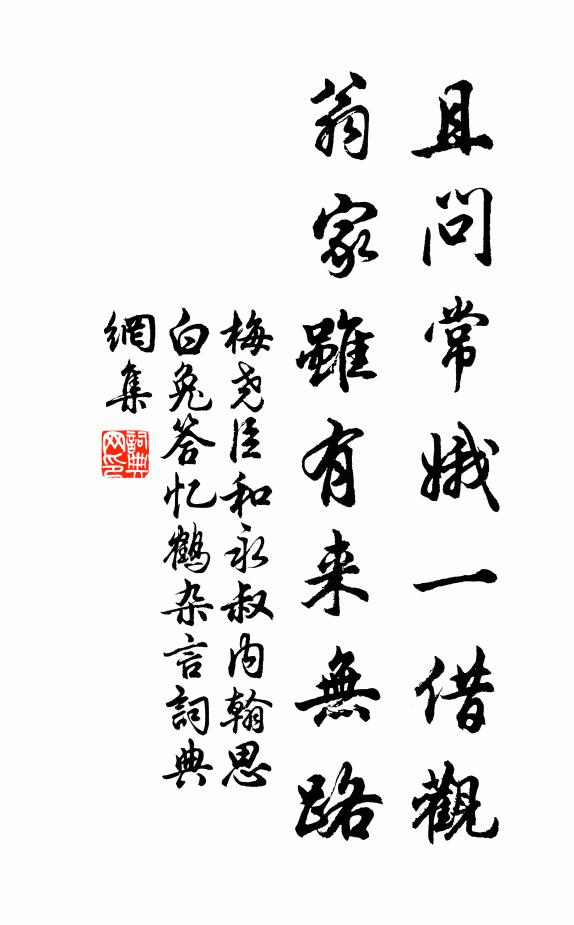 且问常娥一借觀
翁家雖有来無路
梅尧臣和永叔内翰思
白兔答忆鶴杂言詞典
網集
詞典网印